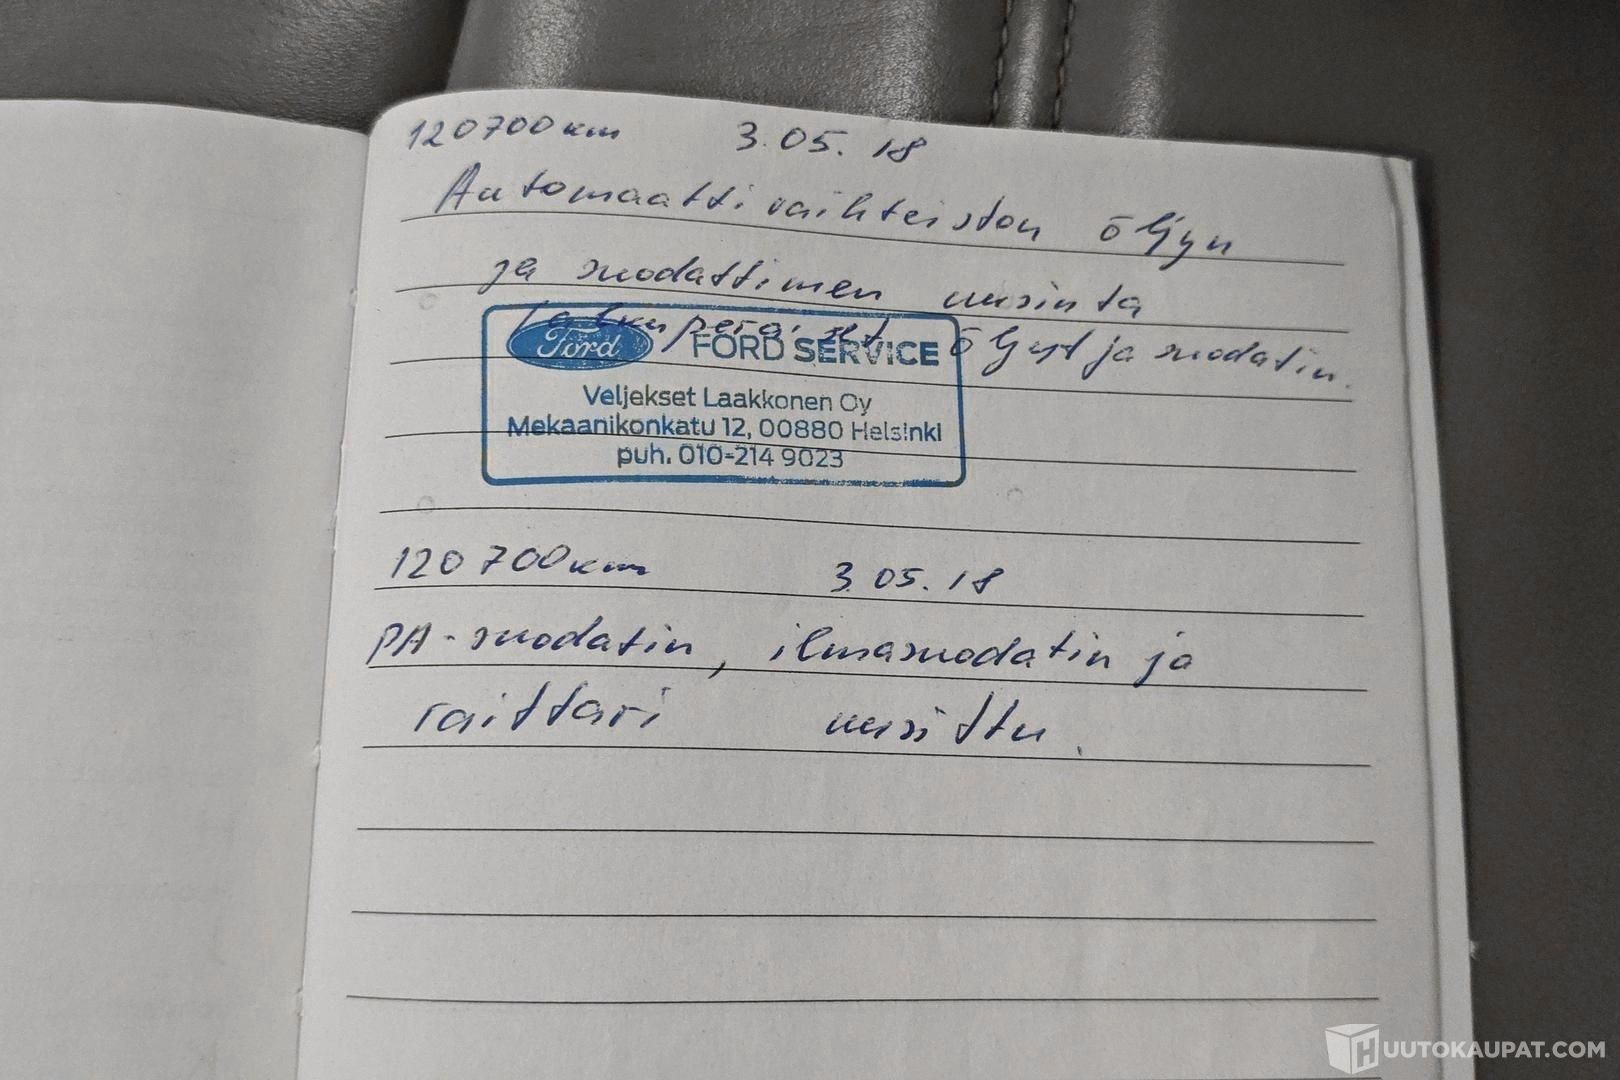 120700km 3.05.18
Automaattivaihteiston öljyn
ja suodattimen uusinta
Alkuperäiset öljyt ja suodatin.
Ford FORD SERVICE
Veljekset Laakkonen Oy
Mekaanikonkatu 12, 00880 Helsinki
puh. 010-214 9023
120700km 3.05.18
PA-suodatin, ilmasuodatin ja
raittari uusittu.
HUUTOKAUPAT.COM